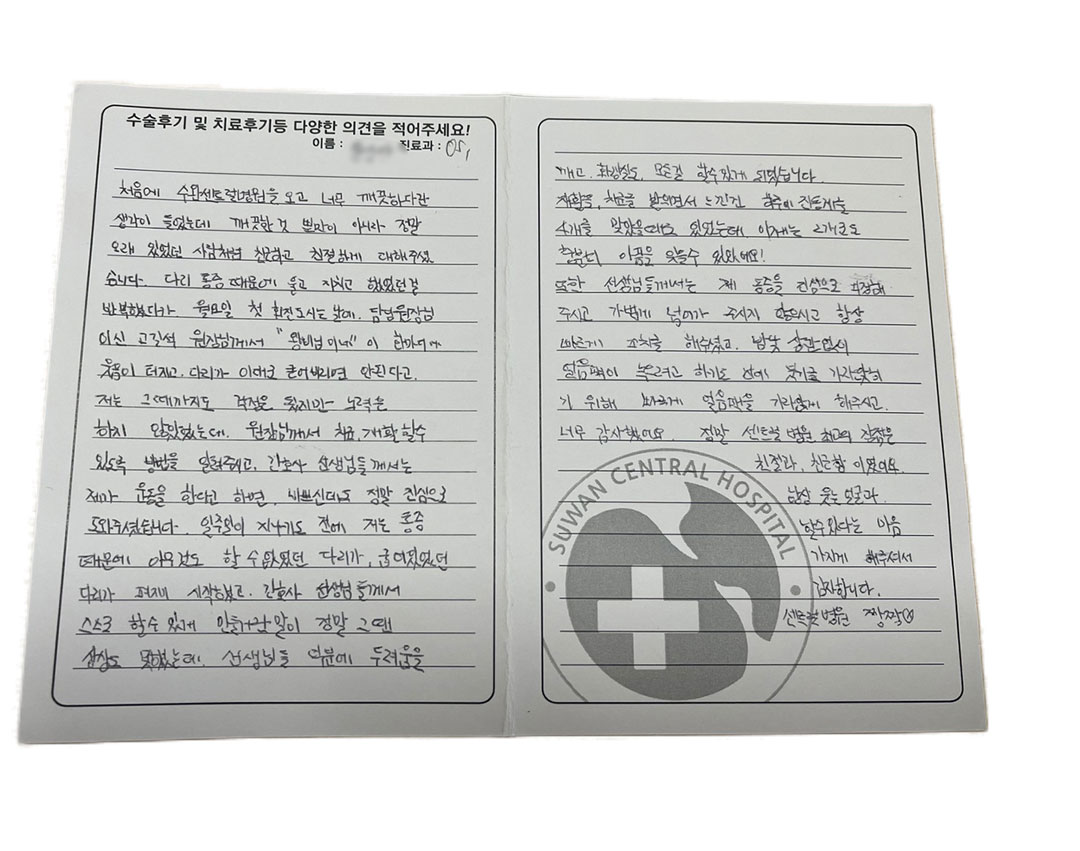 수술후기 및 치료후기등 다양한 의견을 적어주세요!
이름 : 진료과 : OS,
처음에 수완센트럴병원을 오고 너무 깨끗하다란
생각이 들었는데 깨끗한 것 뿐만이 아니라 정말
오래 있었던 사람처럼 친근하고 친절하게 대해주셨
습니다. 다리 통증 때문에 울고 지치고 했었던걸
반복했다가 월요일 첫 회진도시는 날에. 담당원장님
이신 원장님께서 이 한마디에
웃음이 터지고, 다리가 이대로 굳어버리면 안된다고.
저는 그때까지도 걱정은 됬지만 노력은
하지 않았었는데. 원장님께서 치료, 재활 할수
있도록 방법을 알려주시고, 간호사 선생님들께서는
제가 운동을 한다고 하면, 바쁘신데도 정말 진심으로
도와주셨습니다. 일주일이 지나기도 전에 저는 통증
때문에 아무것도 할 수 없었던 다리가, 굽어졌었던
다리가 펴지기 시작하였고. 간호사 선생님들께서
스스로 할수 있게 만들거란 말이 정말 그땐
상상도 못했는데. 선생님들 덕분에 두려움을
깨고, 화장실도, 모든걸 할수있게 되었습니다
재활을, 치료를 받으면서 느낀건 하루에 진통제를
4개를 맞았을때도 있었는데 이제는 2개로도
충분히 아픔을 잊을수 있었어요!
또한 선생님들께서는 제 통증을 진심으로 걱정해
주시고 가볍게 넘어가 주시지 않으시고 항상
빠르게 조치를 해주셨고. 밤낮 상관없이
얼음팩이 녹으려고 하기도 전에 붓기를 가라앉히
기 위해 빠르게 얼음팩을 해주시고.
너무 감사했어요. 정말 센트럴 병원 최고의 장점은
친절과, 친근함 이였어요.
남상 웃는 얼굴과.
할수있다는 마음
가지게 해주셔서
감사합니다.
센트럴병원 짱짱
SUWAN CENTRAL HOSPITAL